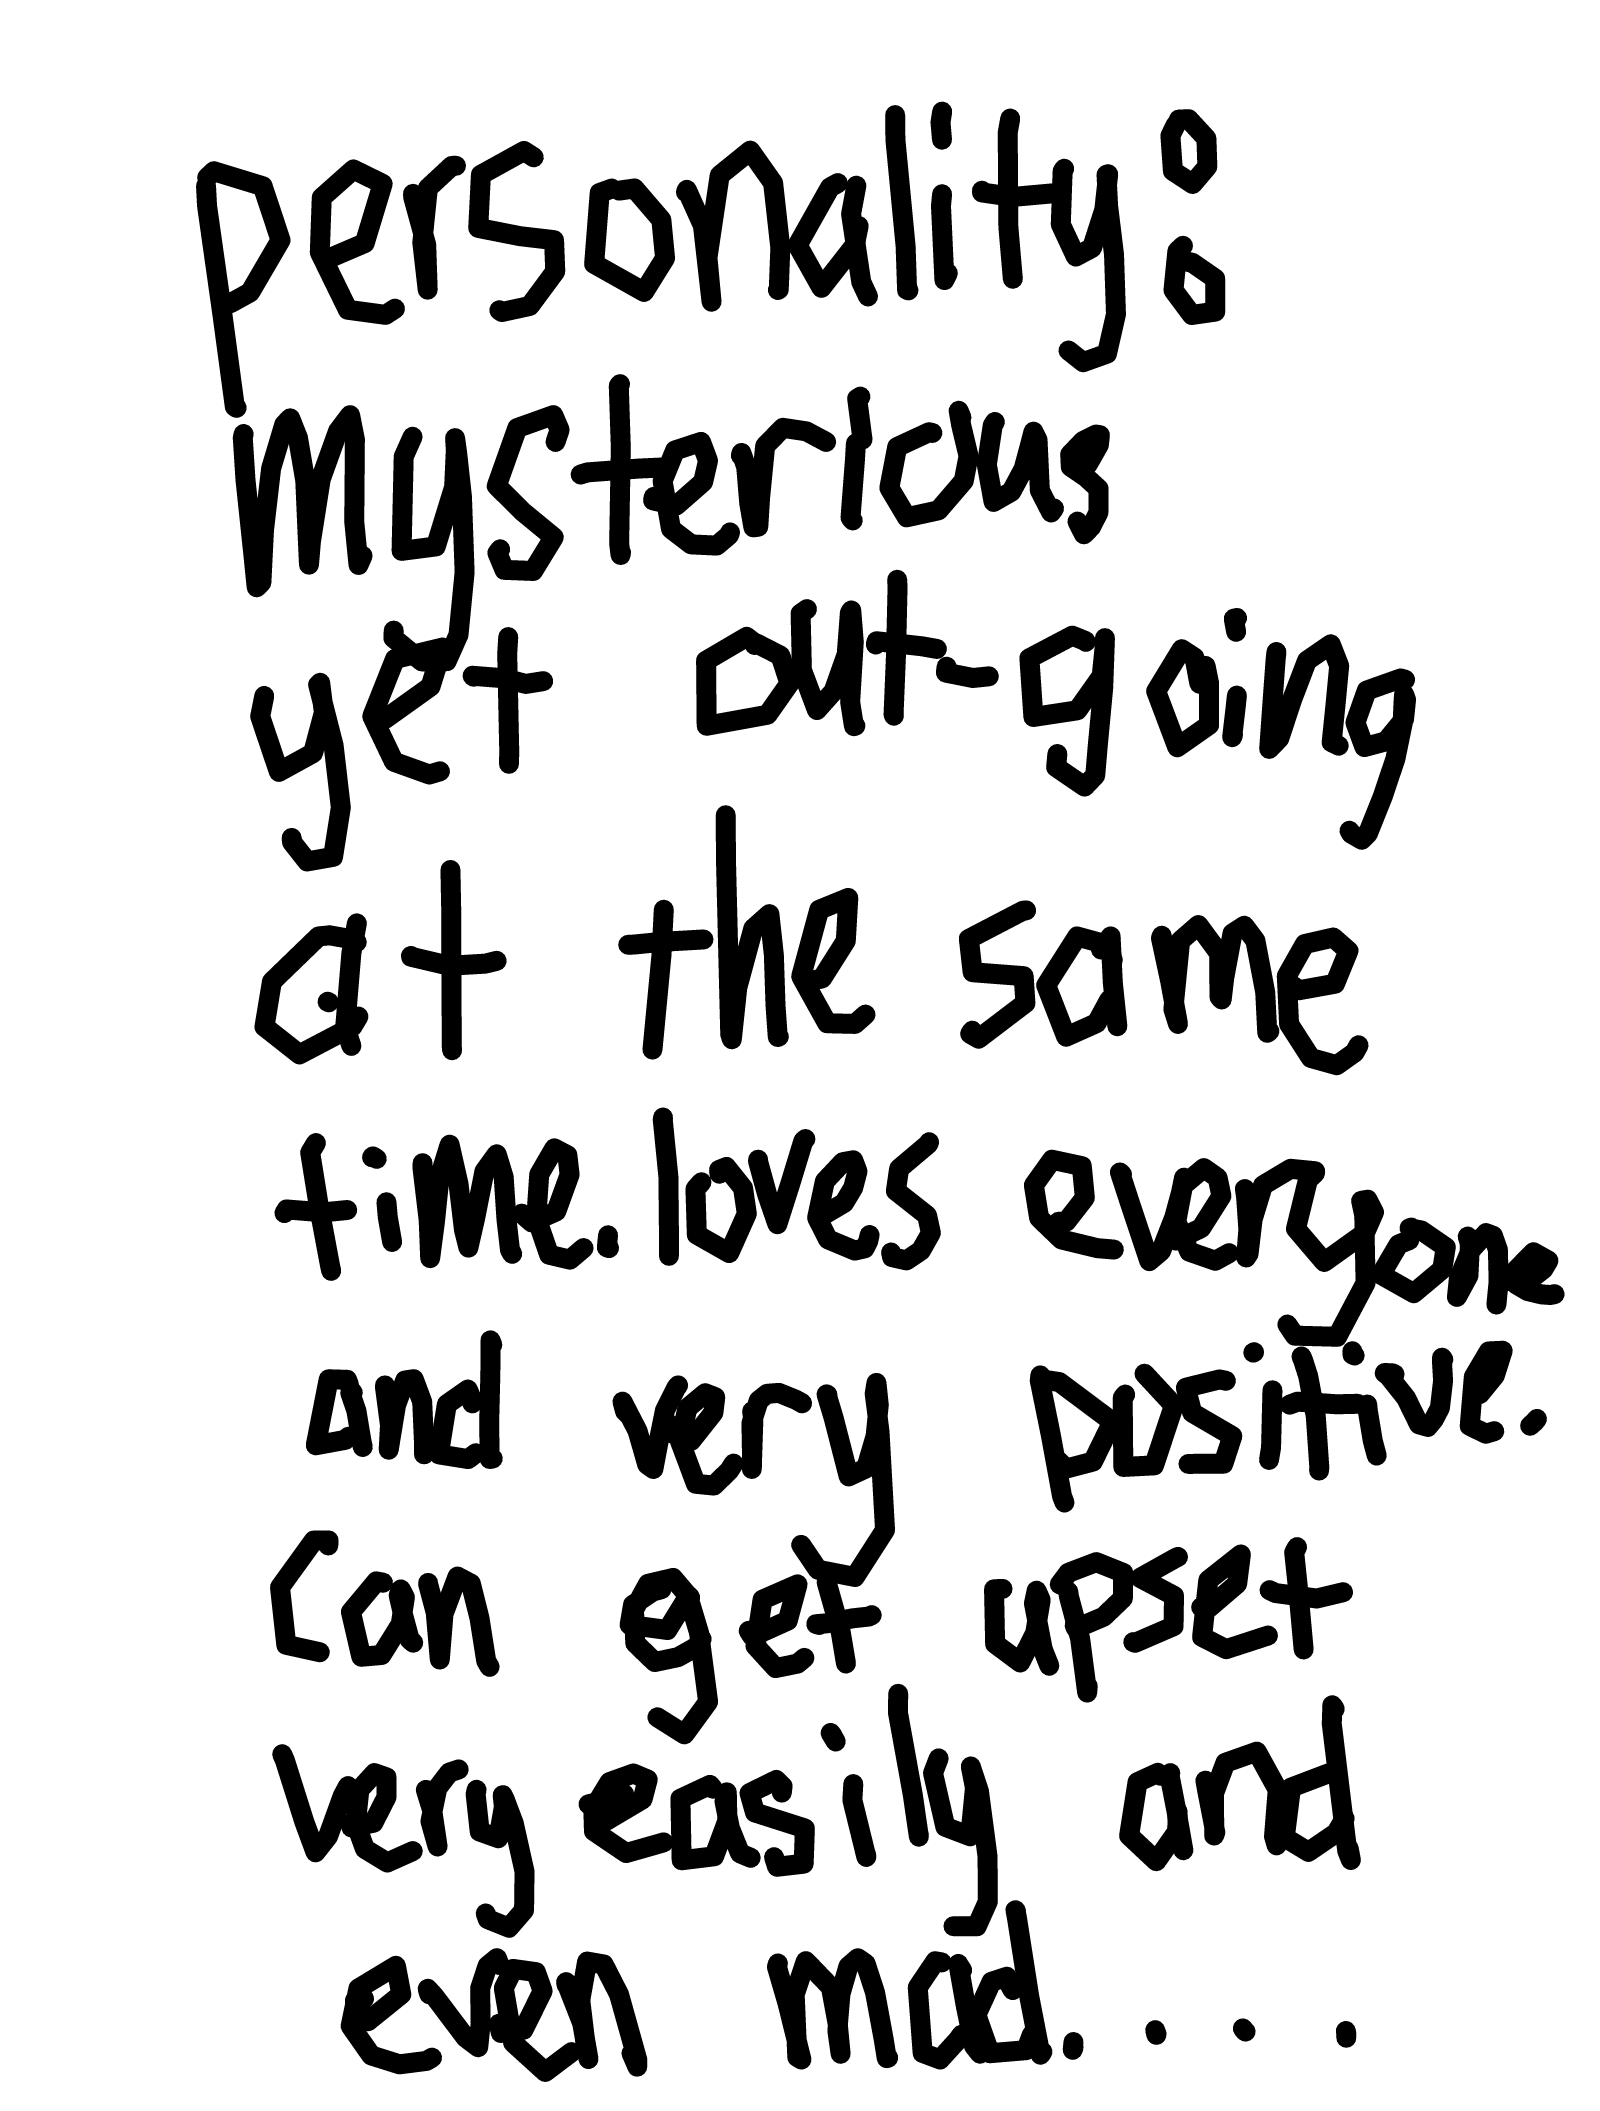 personality:
mysterious
yet out-going
at the same
time. loves everyone
and very positive.
Can get upset
very easily and
even mad....